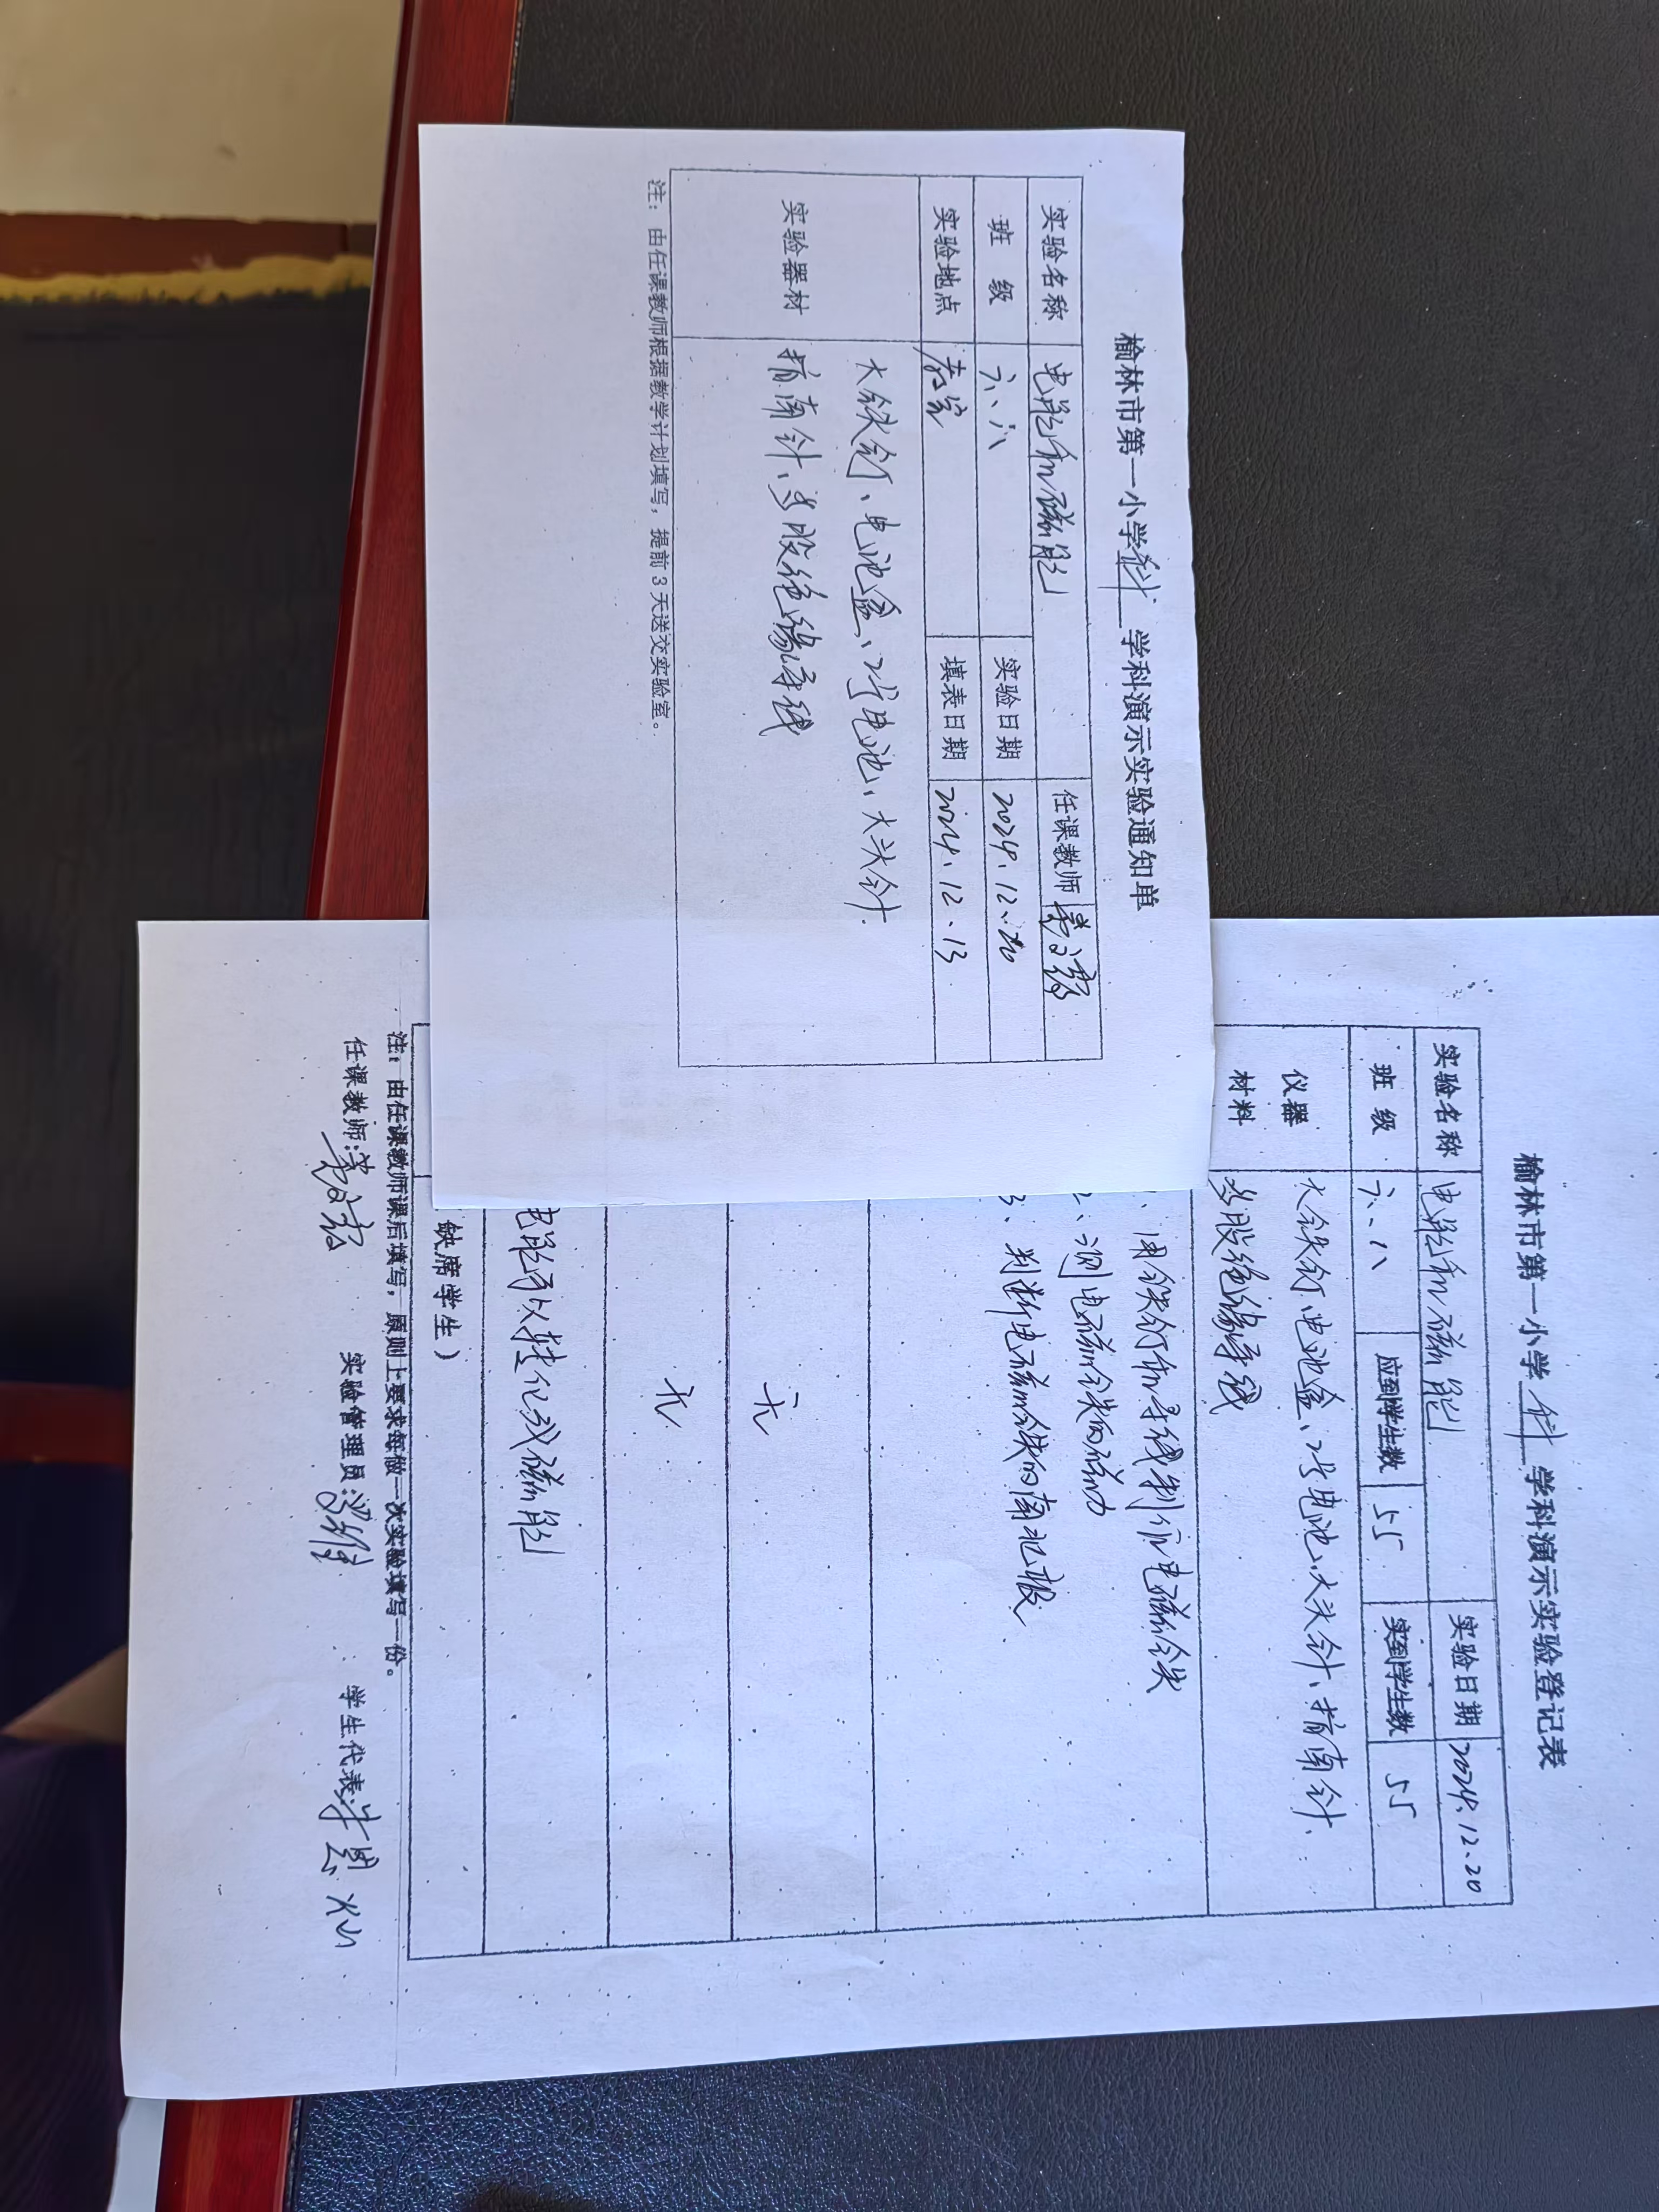 榆林市第一小学 科 学科演示实验通知单
实验名称 电能和磁能 任课教师
班 级 六、八 实验日期 2024.12.20
实验地点 教室 填表日期 2024.12.13
实验器材
大铁钉、电池盒、2号电池、大头针
指南针、多股绝缘导线
注：由任课教师根据教学计划填写，提前3天送交实验室。
榆林市第一小学 科 学科演示实验登记表
实验名称 电能和磁能 实验日期 2024.12.20
班 级 六、八 应到学生数 55 实到学生数 55
仪器
材料
大铁钉、电池盒、2号电池、大头针、指南针、
多股绝缘导线
、用铁钉和导线制作电磁铁
2、测电磁铁的磁力
3、判断电磁铁的南北极
无
无
电能可以转化成磁能
缺席学生）
注：由任课教师课后填写，原则上要求每做一次实验填写一份。
任课教师： 实验管理员： 学生代表：